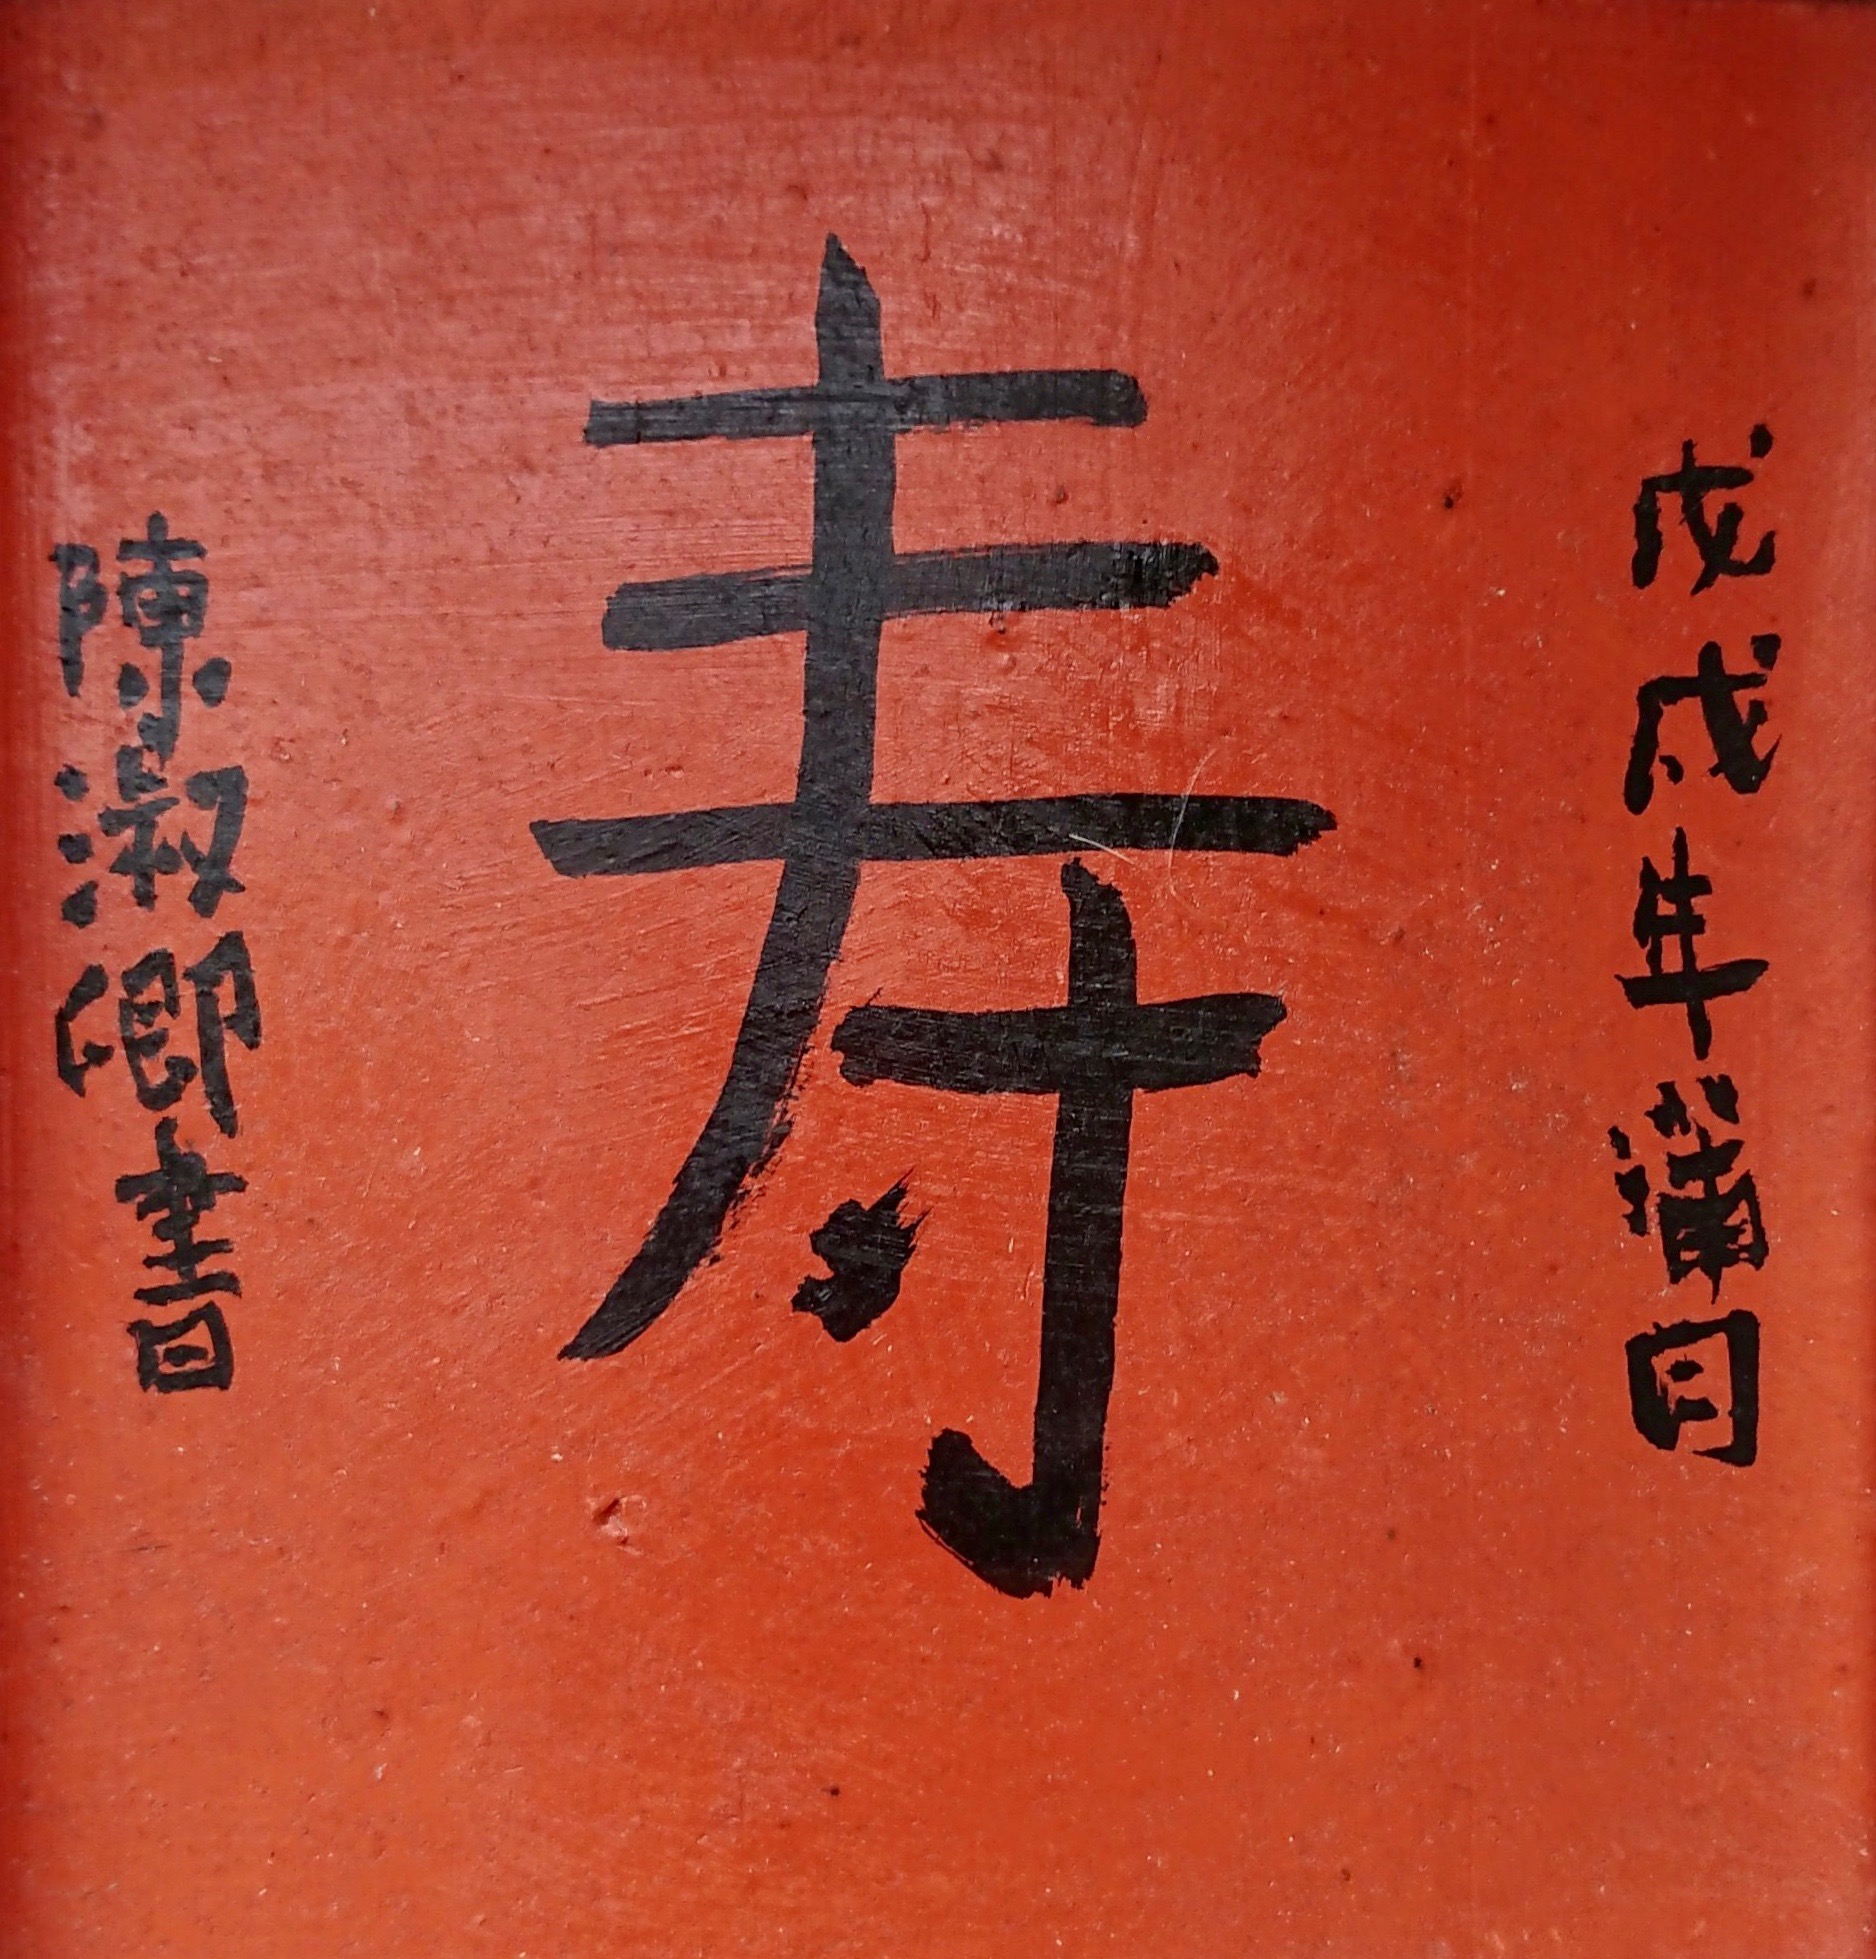 戊戌年蒲月
寿
陳淑卿書